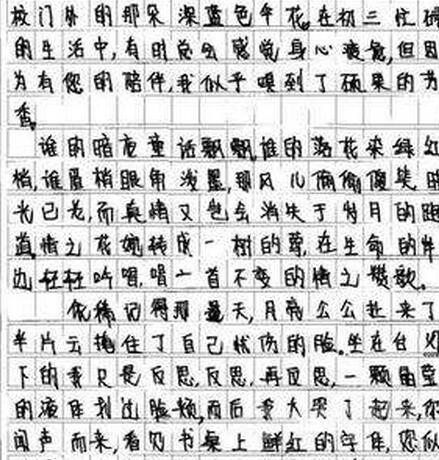 校门外的那朵深蓝色牵花。在初三住
的生活中,有时总会感觉身心疲惫,但因
为有您的陪伴,我似乎嗅到了硕果的芳
香。
谁的暗夜童话飘飘,谁的落花来绿红
梢,谁眉梢眼角泼墨,那风儿偷偷傻笑。时
光已老,而真情又也会消失于时月的跑
道,情之花婉转成一树的蕾,在生命的岸
边轻轻吟唱,唱一首不变的情之赞歌。
依稀记得那夏天,月亮公公赶来了
半片云掩住了自己忧伤的脸。坐在台灯
下的我只是反思,反思,再反思,一颗晶莹
的液体划过脸颊,而后我大哭了起来,你
闻声而来,看见书桌上鲜红的字体,您似